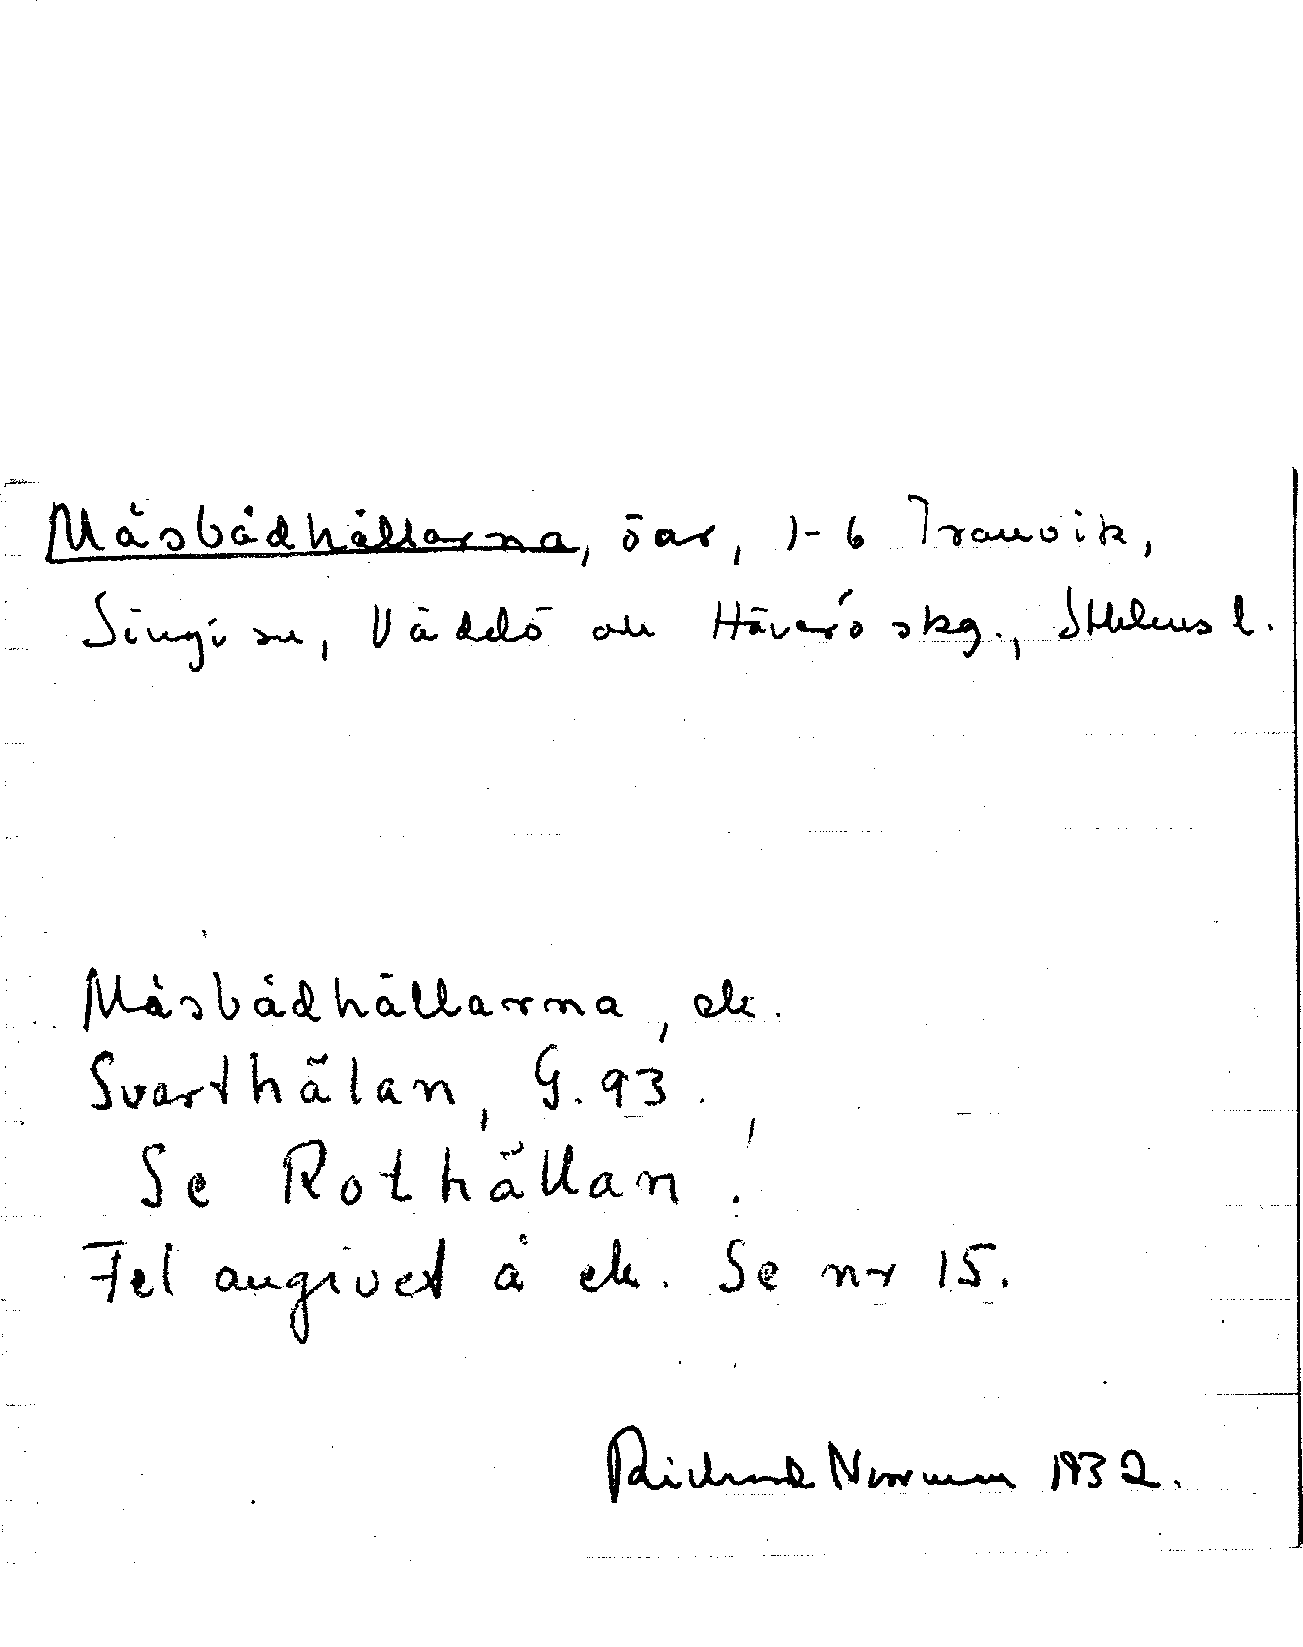 Måsbådhällarna, öar, 1-6 Tranvik,
Singö sn, Väddö och Häverö skg., Sthlms l.
Måsbådhällarna, ek.
Svarthälan, G. 93.
Se Rothällan.
Fel angivet å ek. Se nr 15.
Richard Norrman 1932.